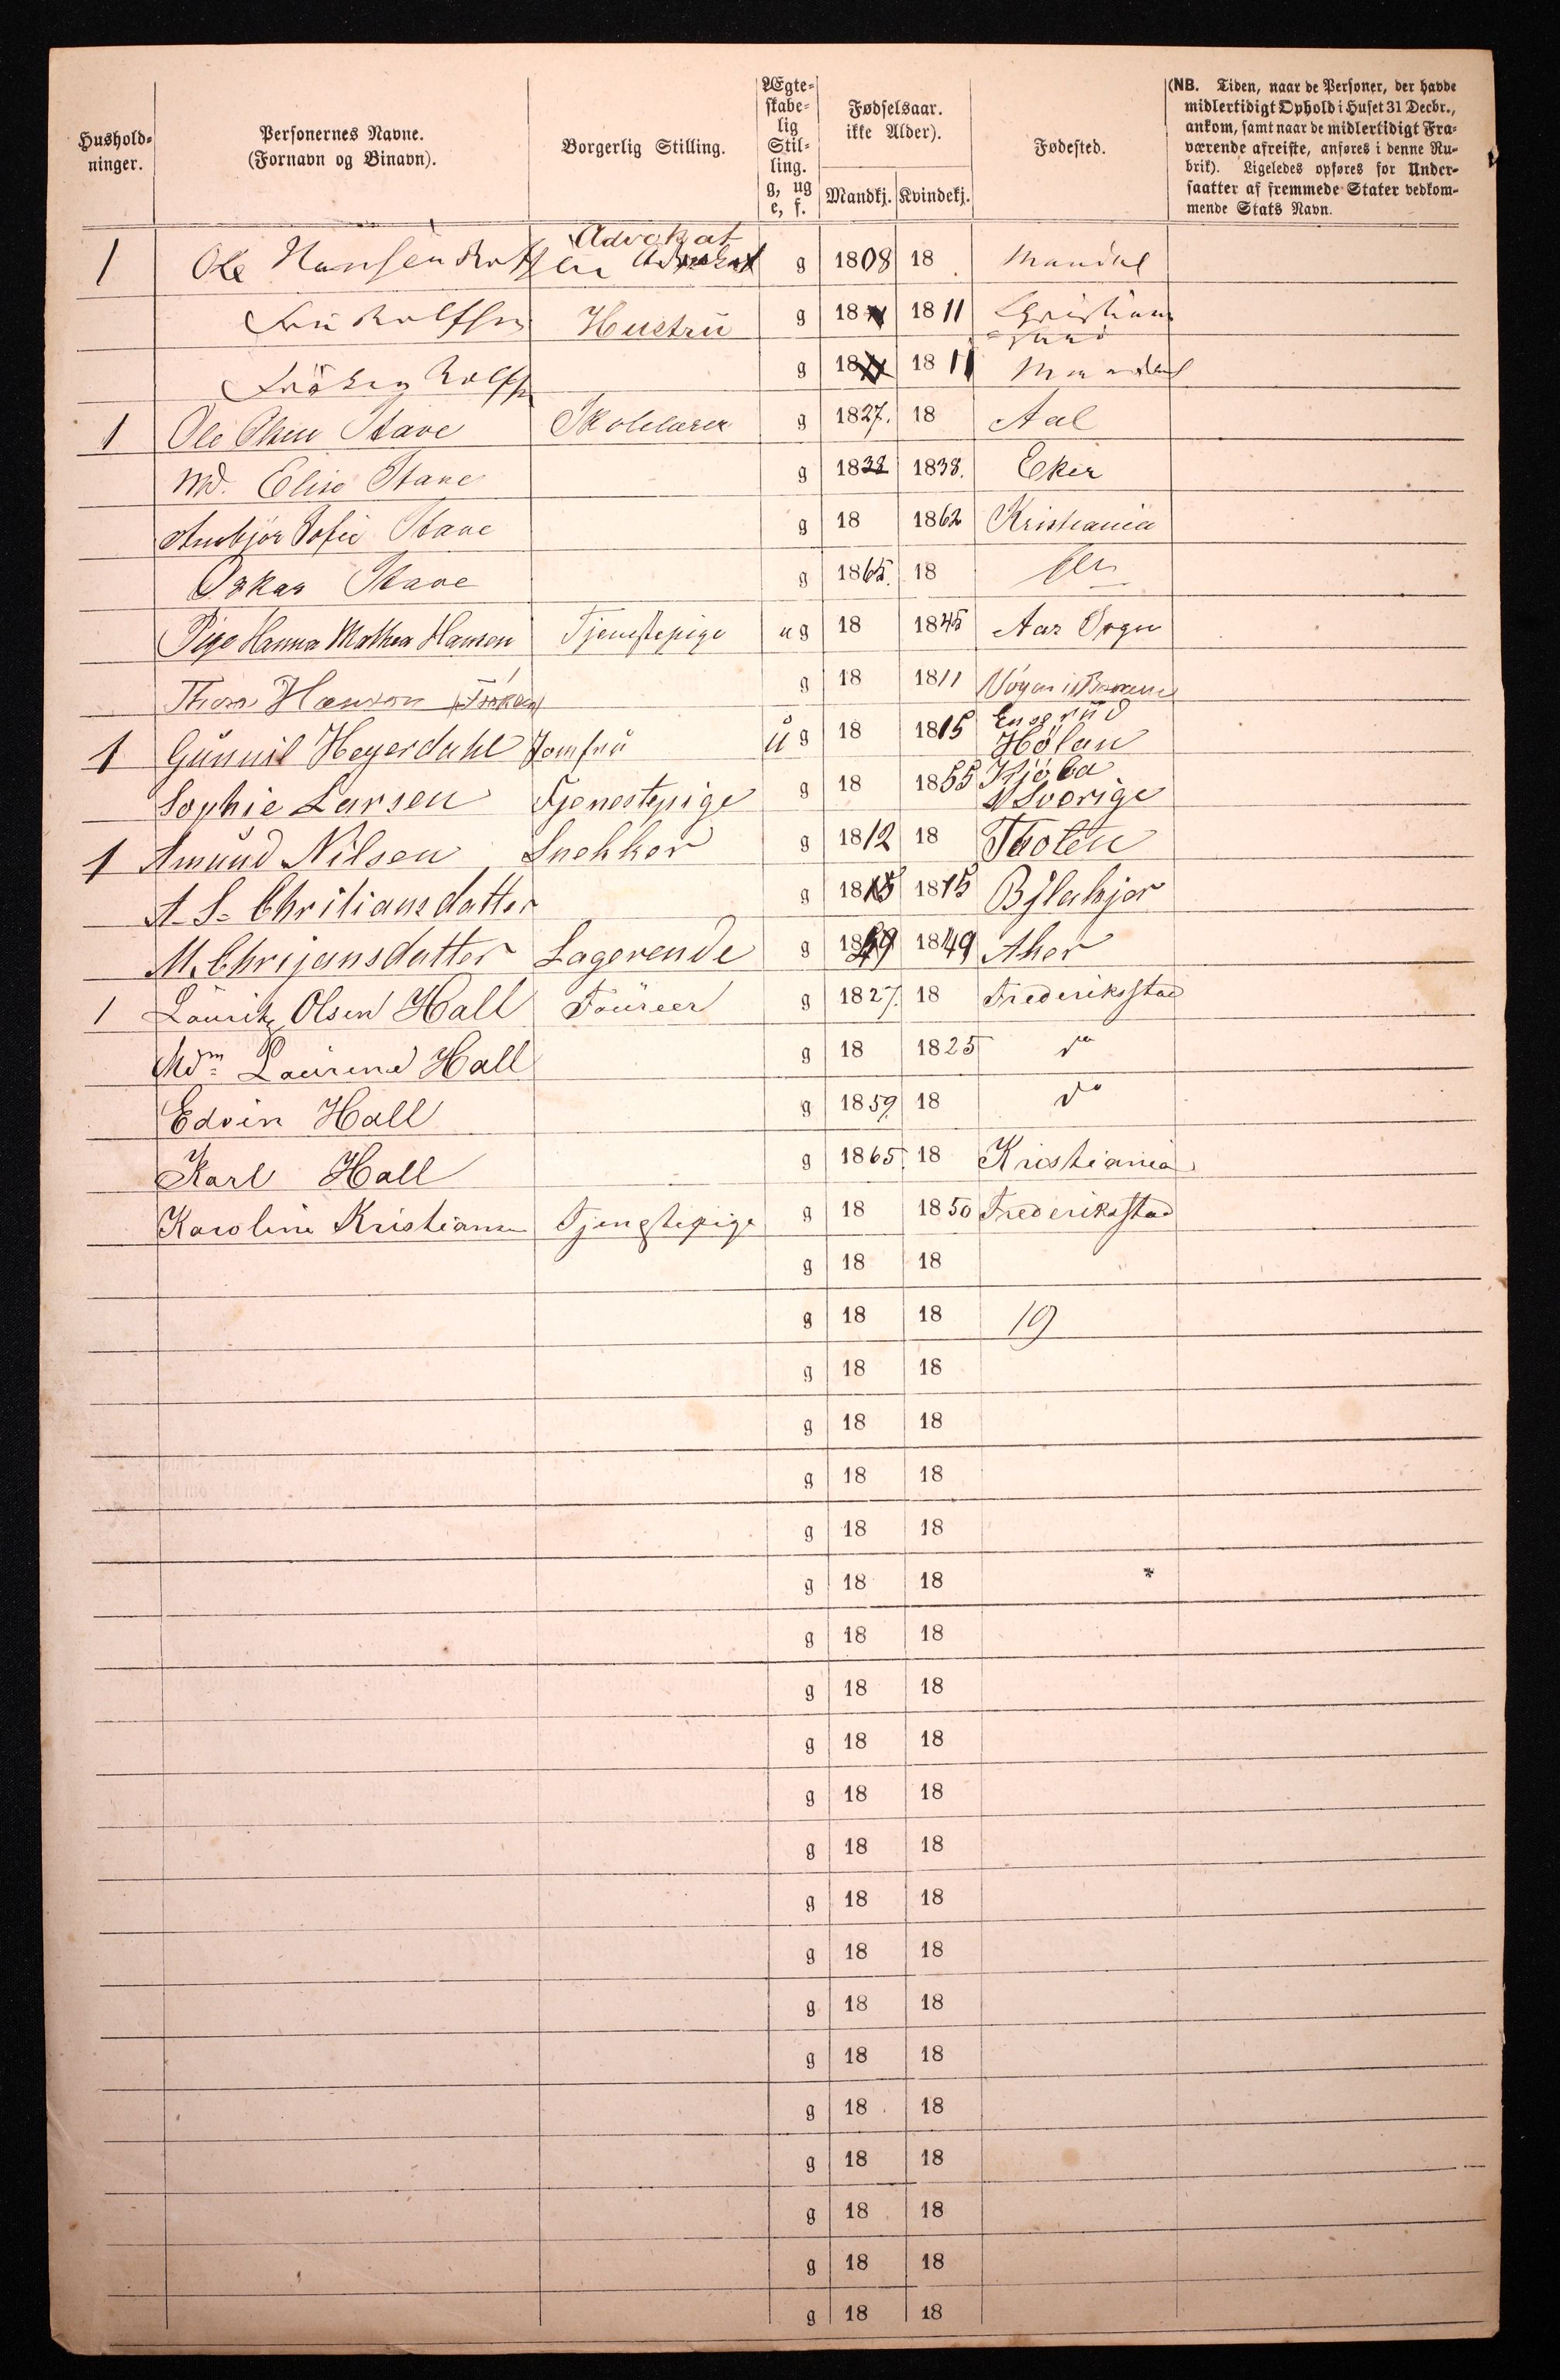 Hushold-
ninger.
Personernes Navne.
(Fornavn og Binavn).
Borgerlig Stilling.
Ægte-
skabe-
lig
Stil-
ling.
g, ug
e, f.
Fødselsaar.
ikke Alder).
Mandkj. Kvindekj.
Fødested.
(NB. Tiden, naar de Personer, der havde
midlertidigt Ophold i Huset 31 Decbr.,
ankom, samt naar de midlertidigt Fra-
værende afreiste, anføres i denne Ru-
brik). Ligeledes opføres for Under-
saatter af fremmede Stater vedkom-
mende Stats Navn.
Advokat
1 Ole Hansen g 1808 18 Mandal
Hustru g 18 1811 Christian
sand
g 18 1811 Mandal
1 Ole Olsen Stave g 1827. 18 Aal
Md. Elise Stave g 1838 1838. Eker
Sofie Stave g 18 1862 Kristiania
Oskar Stave g 1865. 18
Pige Hanna Mathea Hansen Tjenestepige ug 18 1845 Aas
Thora Hanson (Frøken) g 18 1811
1 Gunnil Heyerdahl Jomfru ug 18 1815 Hølan
Sophie Larsen Tjenestepige g 18 1855 Sverige
1 Amund Nilsen Snekker g 1812 18 Thoten
A. S. Chritiansdatter g 1815 1815
M. Chrijansdatter Lagerende g 1849 1849 Aker
1 Lauritz Olsen Hall g 1827. 18 Frederiksstad
Mdm Laurine Hall g 18 1825 do
Edvin Hall g 1859. 18 do
Karl Hall g 1865. 18 Kristiania
Karoline Kristianse Tjenstepige g 18 1850 Frederiksstad
g 18 18
g 18 18 19
g 18 18
g 18 18
g 18 18
g 18 18
g 18 18
g 18 18
g 18 18
g 18 18
g 18 18
g 18 18
g 18 18
g 18 18
g 18 18
g 18 18
g 18 18
g 18 18
g 18 18
g 18 18
g 18 18